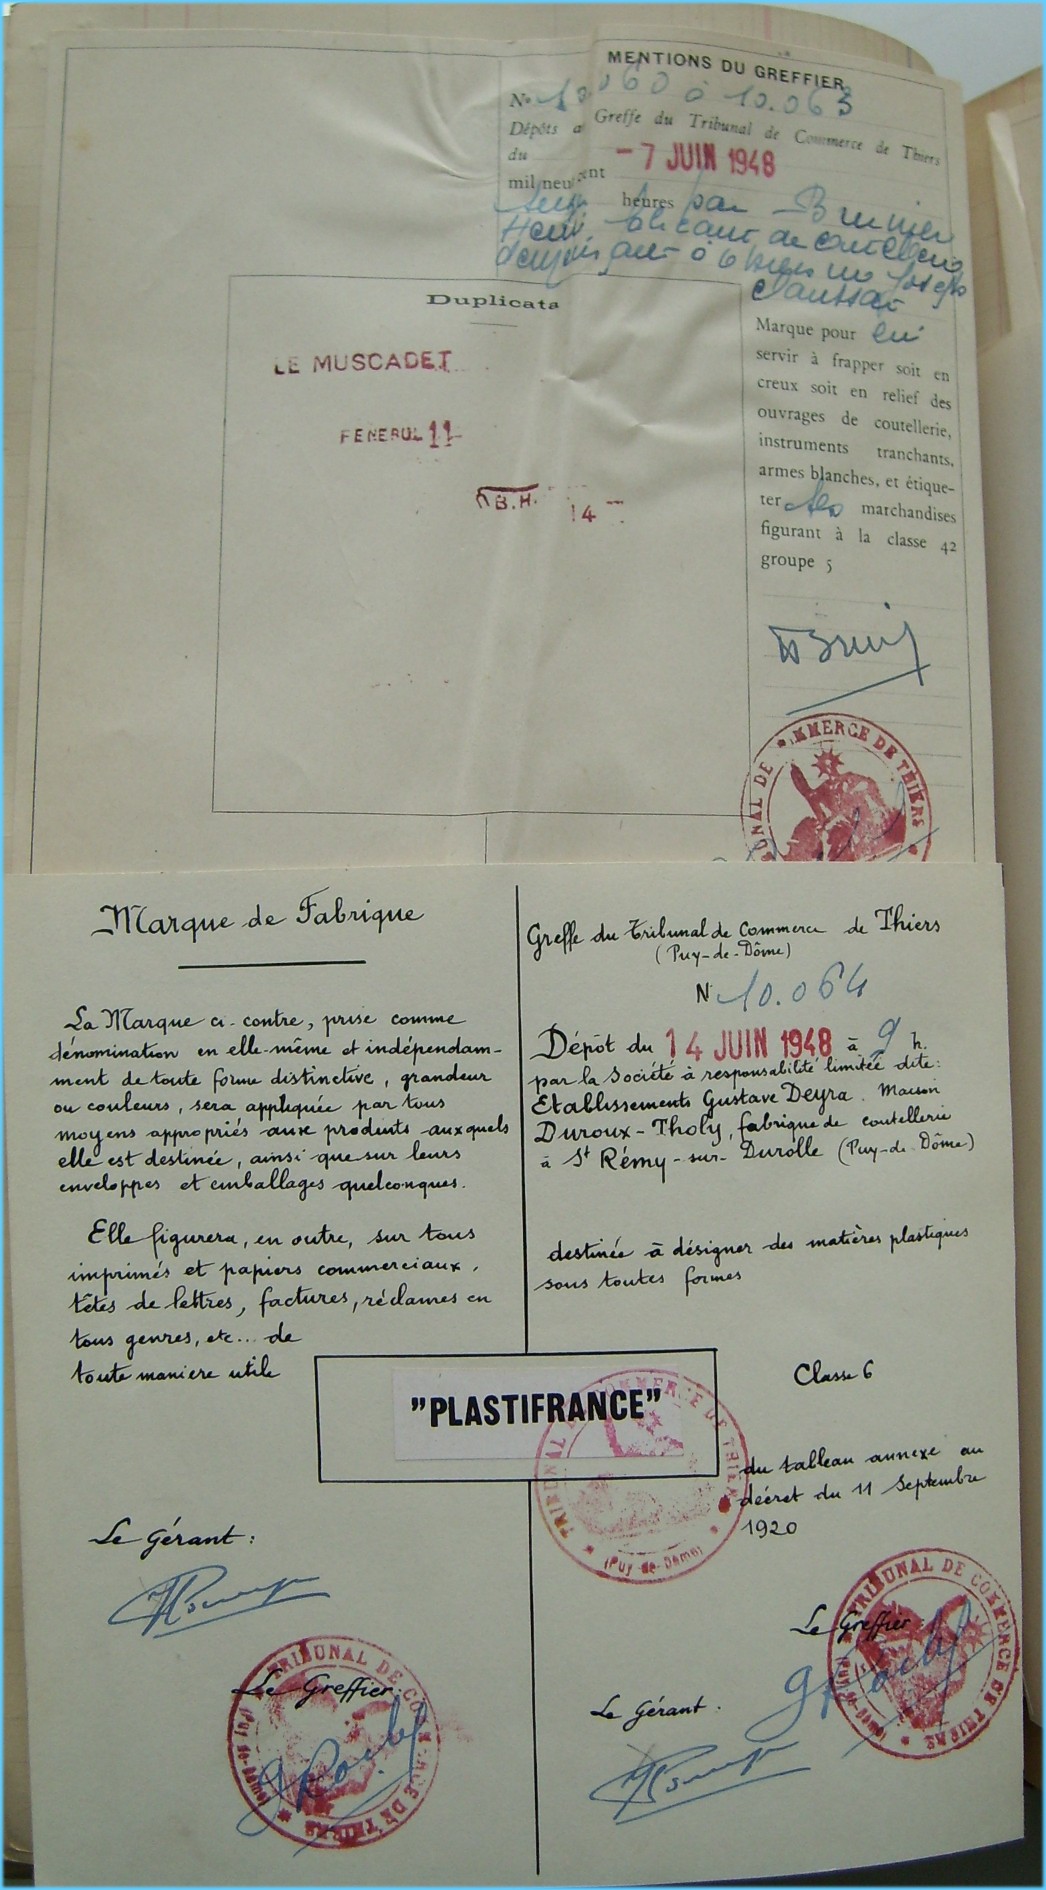 MENTIONS DU GREFFIER
No 10.060 à 10.063
Dépôts a Greffe du Tribunal de Commerce de Thiers
du - 7 JUIN 1948
mil neuf cent
heures par Brunier
Henri fabricant de coutellerie
demeurant à Thiers
Duplicata
LE MUSCADET
FENEBUL 11
B.H. 14
Marque pour lui
servir à frapper soit en
creux soit en relief des
ouvrages de coutellerie,
instruments tranchants,
armes blanches, et étique-
ter les marchandises
figurant à la classe 42
groupe 5
TRIBUNAL DE COMMERCE DE THIERS
Marque de Fabrique
La Marque ci-contre, prise comme
dénomination en elle-même et indépendam-
ment de toute forme distinctive, grandeur
ou couleurs, sera appliquée par tous
moyens appropriés aux produits auxquels
elle est destinée, ainsi que sur leurs
enveloppes et emballages quelconques.
Elle figurera, en outre, sur tous
imprimés et papiers commerciaux,
têtes de lettres, factures, réclames en
tous genres, etc... de
toute maniere utile
Le Gérant :
Le Greffier :
TRIBUNAL DE COMMERCE DE THIERS (Puy-de-Dome)
Greffe du Tribunal de Commerce de Thiers
(Puy-de-Dôme)
N 10.064
Dépôt du 14 JUIN 1948 à 9 h.
par la Société à responsabilité limitée dite :
Etablissements Gustave Deyra. Maison
Duroux-Tholy, fabrique de coutellerie
à St Rémy-sur-Durolle (Puy-de-Dôme)
destinée à désigner des matières plastiques
sous toutes formes
Classe 6
"PLASTIFRANCE"
TRIBUNAL DE COMMERCE DE THIERS (Puy-de-Dome)
du tableau annexe au
décret du 11 Septembre
1920
Le Greffier :
Le Gérant :
TRIBUNAL DE COMMERCE DE THIERS (Puy-de-Dome)